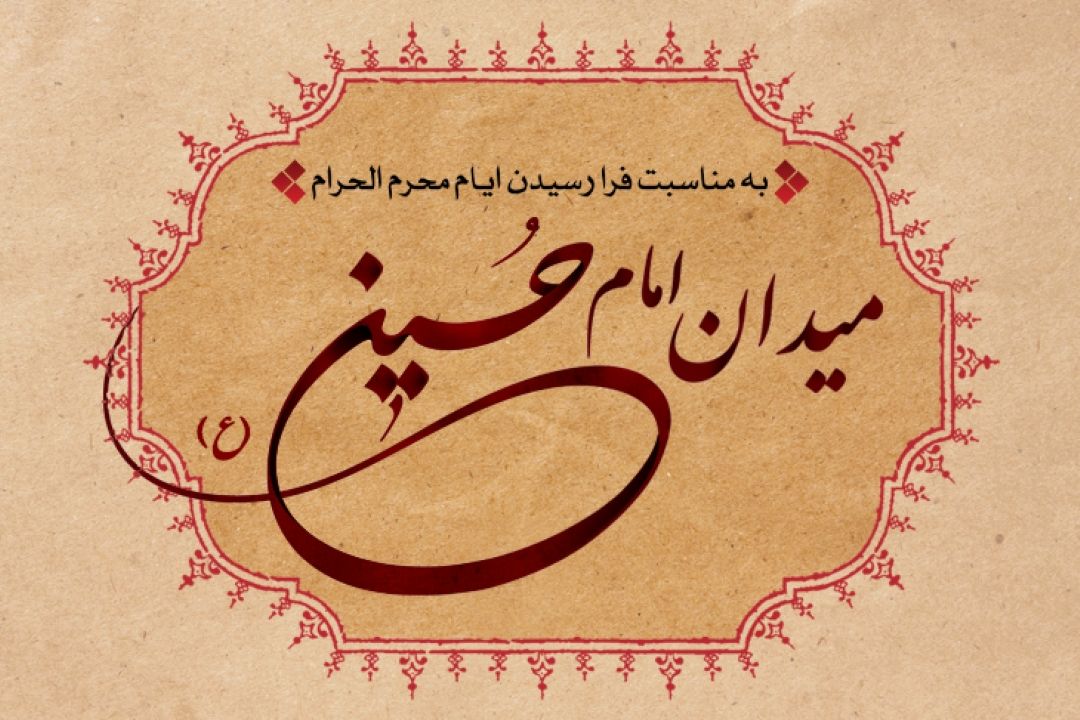 به مناسبت فرا رسیدن ایام محرم الحرام
میدان امام حسین
(ع)